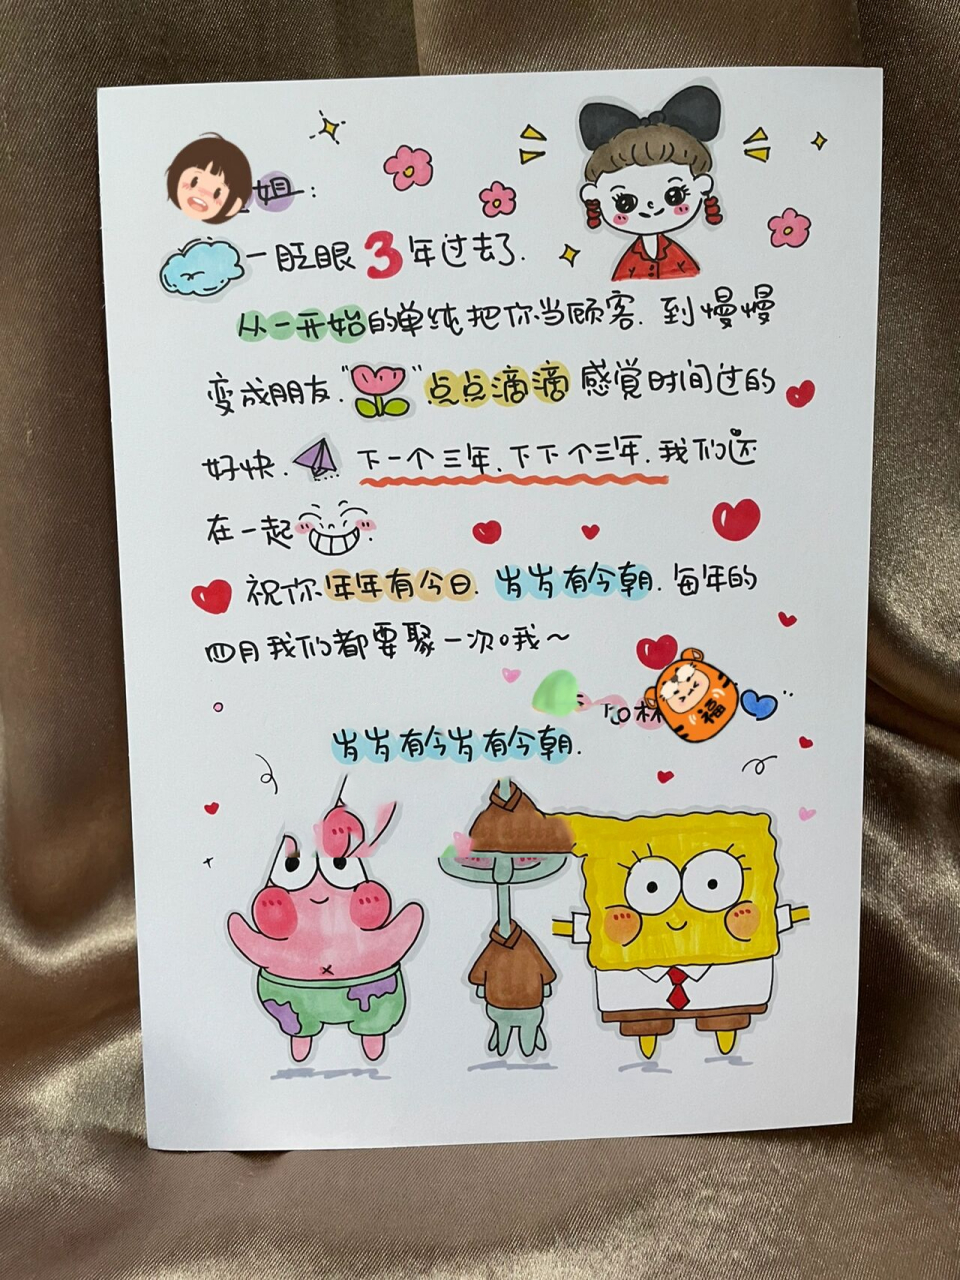 姐：
一眨眼3年过去了.
从一开始的单纯把你当顾客. 到慢慢
变成朋友. " " 点点滴滴 感觉时间过的
好快. 下一个三年. 下下个三年. 我们还
在一起
祝你年年有今日. 岁岁有今朝. 每年的
四月我们都要聚一次哦～
林
福
岁岁有今岁有今朝.